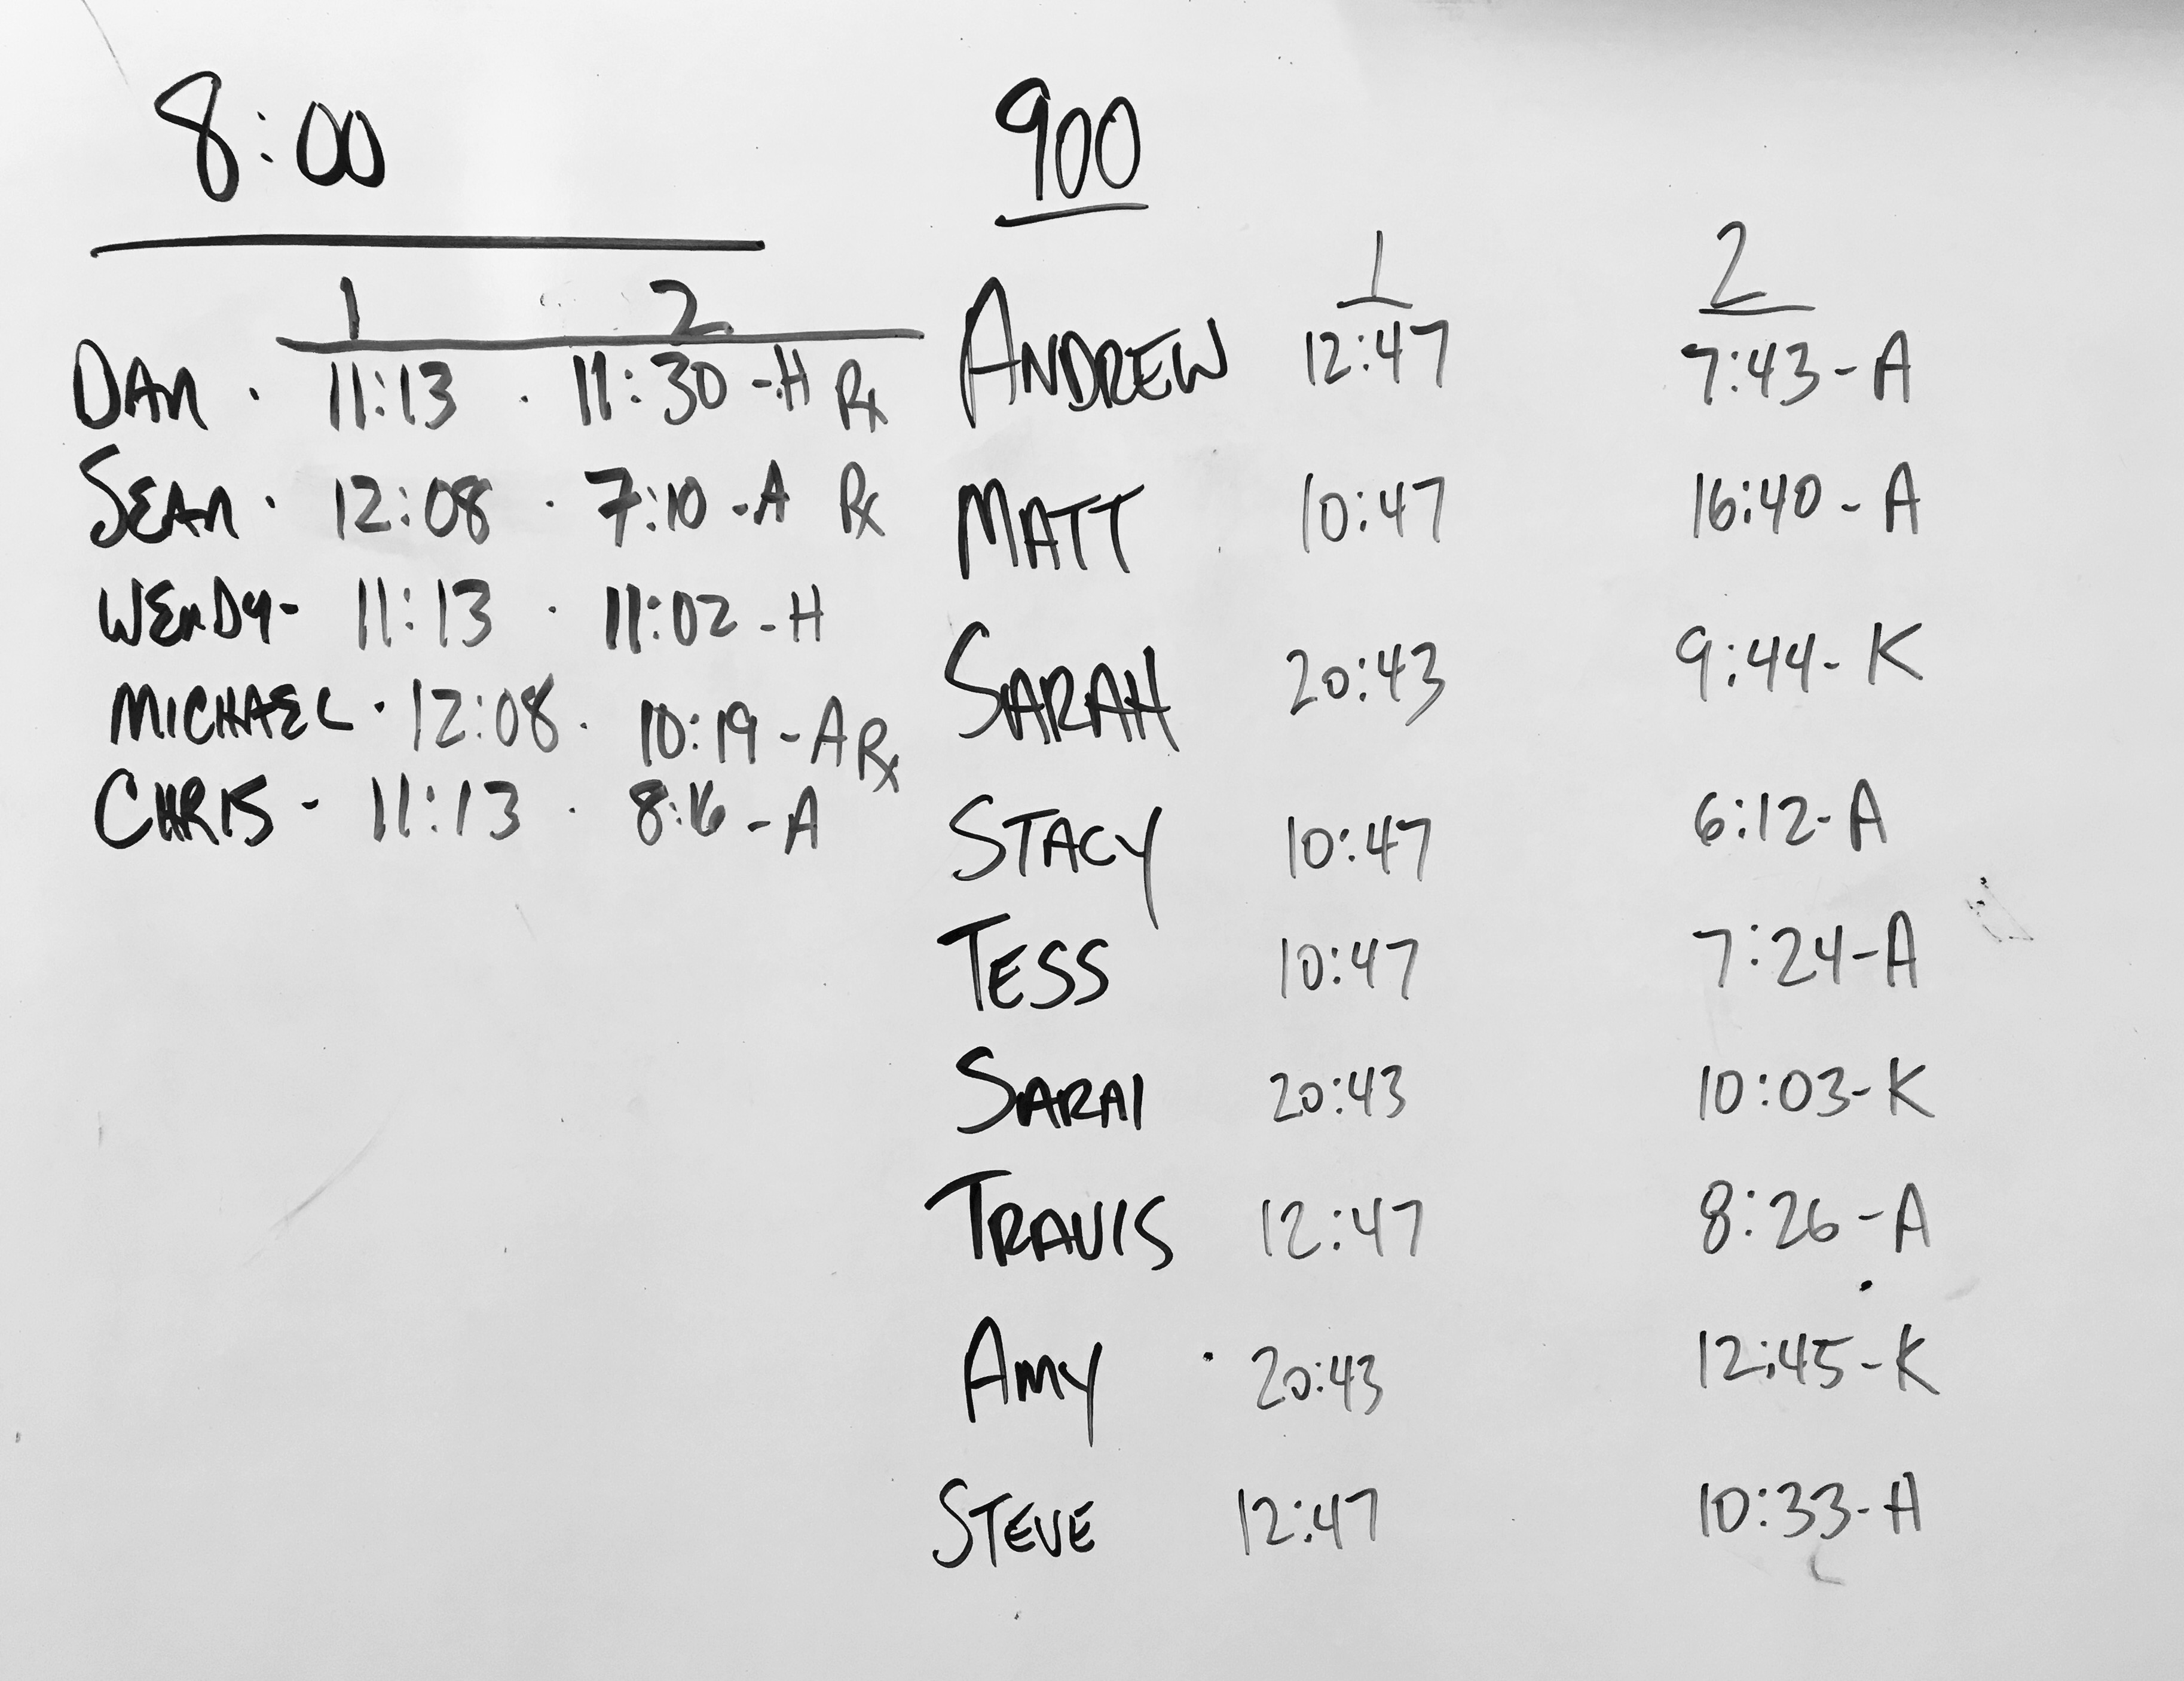 8:00
1 2
DAN · 11:13 · 11:30 -H Rx
SEAN · 12:08 · 7:10 -A Rx
WENDY- 11:13 · 11:02 -H
MICHAEL · 12:08 · 10:19 -A Rx
CHRIS - 11:13 · 8:16 -A
900
1 2
ANDREW 12:47 7:43-A
MATT 10:47 16:40-A
SARAH 20:43 9:44-K
STACY 10:47 6:12-A
TESS 10:47 7:24-A
SARAI 20:43 10:03-K
TRAVIS 12:47 8:26-A
AMY · 20:43 12:45-K
STEVE 12:47 10:33-A